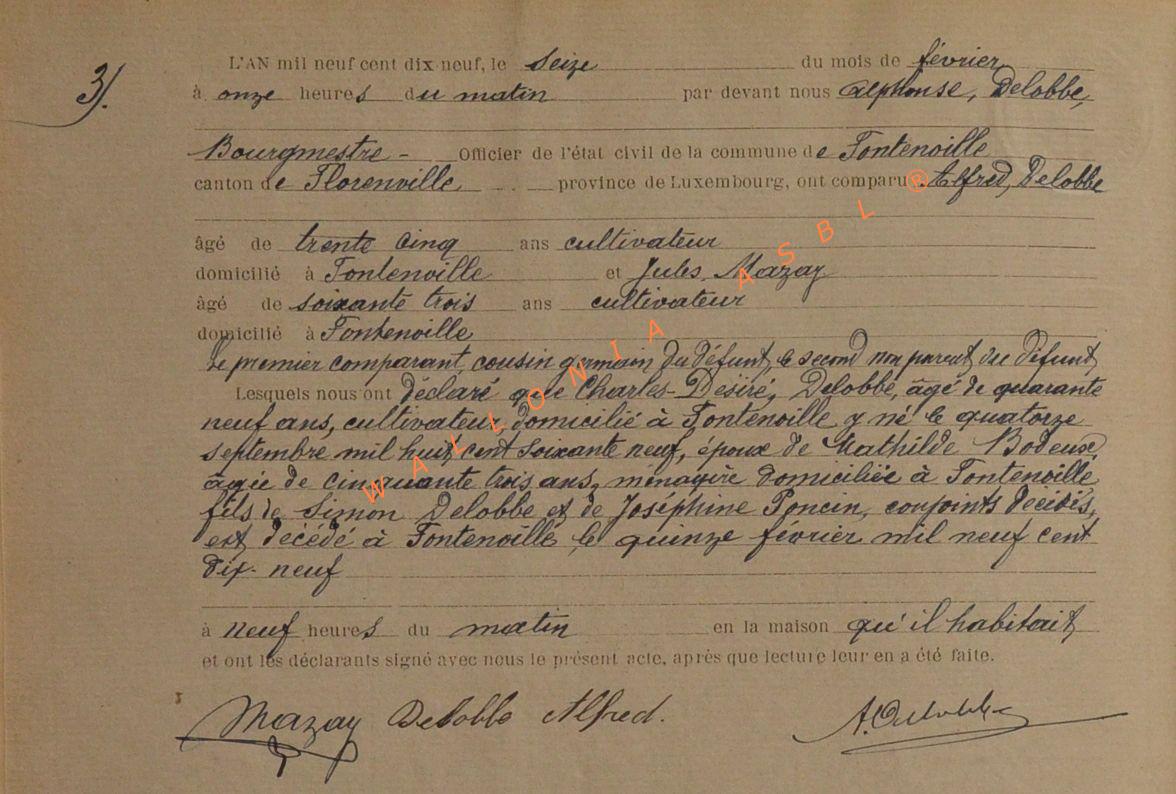 3/.
L'AN mil neuf cent dix neuf, le seize du mois de février
à onze heures du matin par devant nous Alphonse, Delobbe,
Bourgmestre - Officier de l'état civil de la commune de Fontenoille
canton de Florenville province de Luxembourg, ont comparu Alfred, Delobbe
âgé de trente cinq ans cultivateur
domicilié à Fontenoille et Jules Mazay
âgé de soixante trois ans cultivateur
domicilié à Fontenoille
le premier comparant, cousin germain du défunt, le second non parent du défunt,
Lesquels nous ont déclaré que Charles-Désiré, Delobbe, âgé de quarante
neuf ans, cultivateur, domicilié à Fontenoille y né le quatorze
septembre mil huit cent soixante neuf, époux de Mathilde Bodeux,
âgée de cinquante trois ans, ménagère domiciliée à Fontenoille
fils de Simon Delobbe et de Joséphine Poncin, conjoints décédés,
est décédé à Fontenoille le quinze février mil neuf cent
dix-neuf
à neuf heures du matin en la maison qu'il habitait
et ont les déclarants signé avec nous le présent acte, après que lecture leur en a été faite.
Mazay Delobbe Alfred. A. Delobbe
WALLONIA ASBL ®